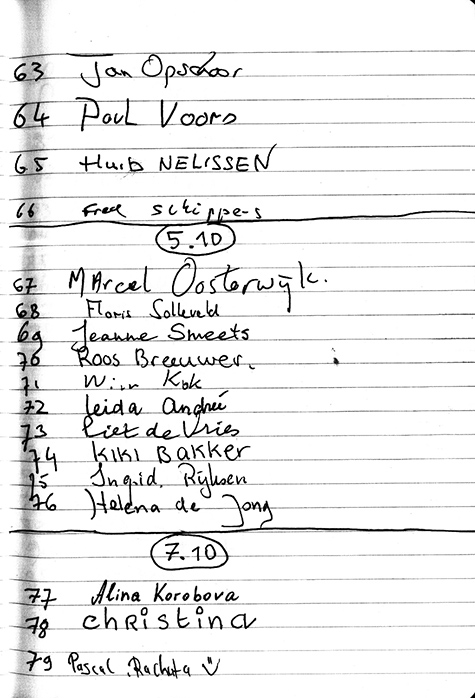 63 Jan Opschoor
64 Paul Voorn
65 Huib NELISSEN
66 Free schippers
5.10
67 MArcel Oosterwijk.
68 Floris Solleveld
69 Jeanne Smeets
70 Roos Breeuwer.
71 Wim Kok
72 leida André
73 Riet de Vries
74 KIKI BAKKER
75 Ingrid. Rijksen
76 Helena de Jong
7.10
77 Alina Korobova
78 Christina
79 Pascal Rachuta